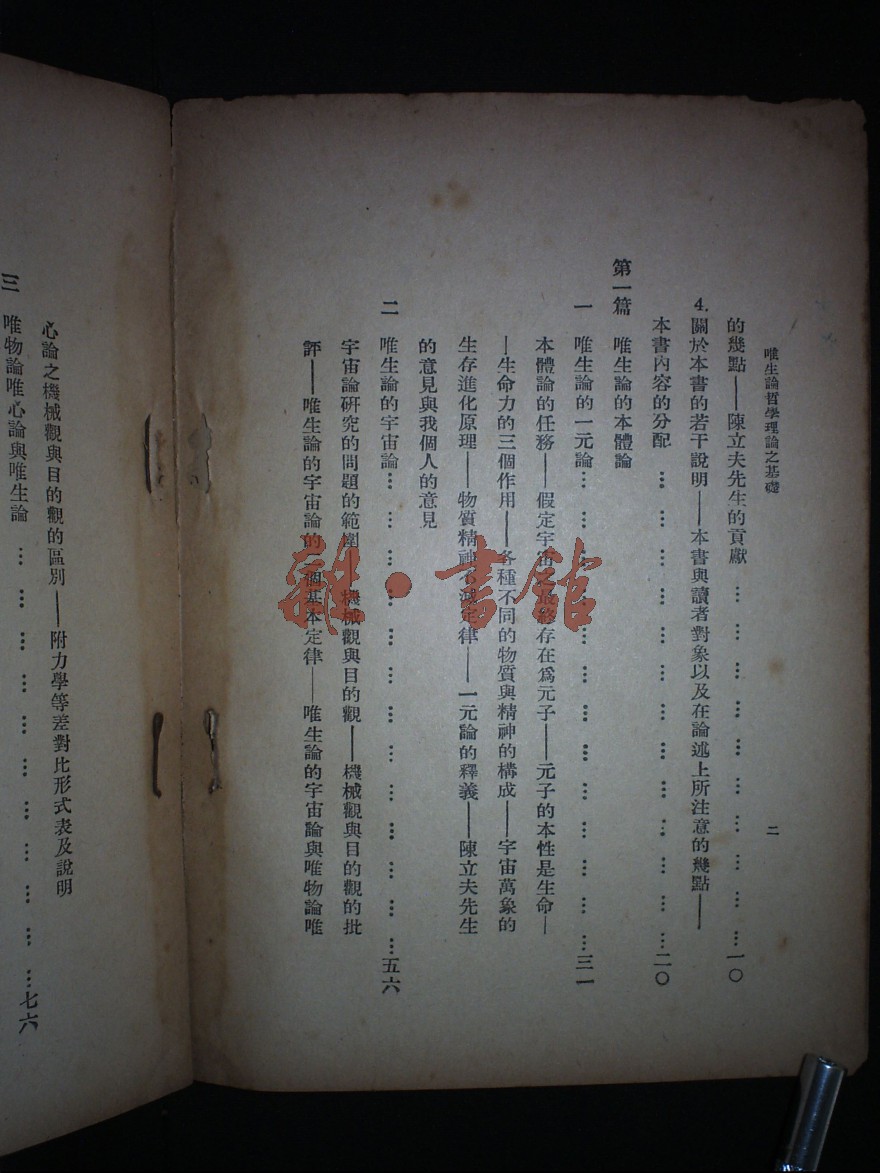 唯生論哲學理論之基礎
二
的幾點——陳立夫先生的貢獻………………………一〇
4.關於本書的若干說明——本書與讀者對象以及在論述上所注意的幾點——
本書內容的分配………………………二〇
第一篇 唯生論的本體論
一 唯生論的一元論………………………三一
本體論的任務——假定宇宙之最終存在爲元子——元子的本性是生命—
—生命力的三個作用——各種不同的物質與精神的構成——宇宙萬象的
生存進化原理——物質精神不滅定律——一元論的釋義——陳立夫先生
的意見與我個人的意見
二 唯生論的宇宙論………………………五六
宇宙論研究的問題的範圍——機械觀與目的觀——機械觀與目的觀的批
評——唯生論的宇宙論的 個基本定律——唯生論的宇宙論與唯物論唯
心論之機械觀與目的觀的區別——附力學等差對比形式表及說明
三 唯物論唯心論與唯生論………………………七六
雜·書館